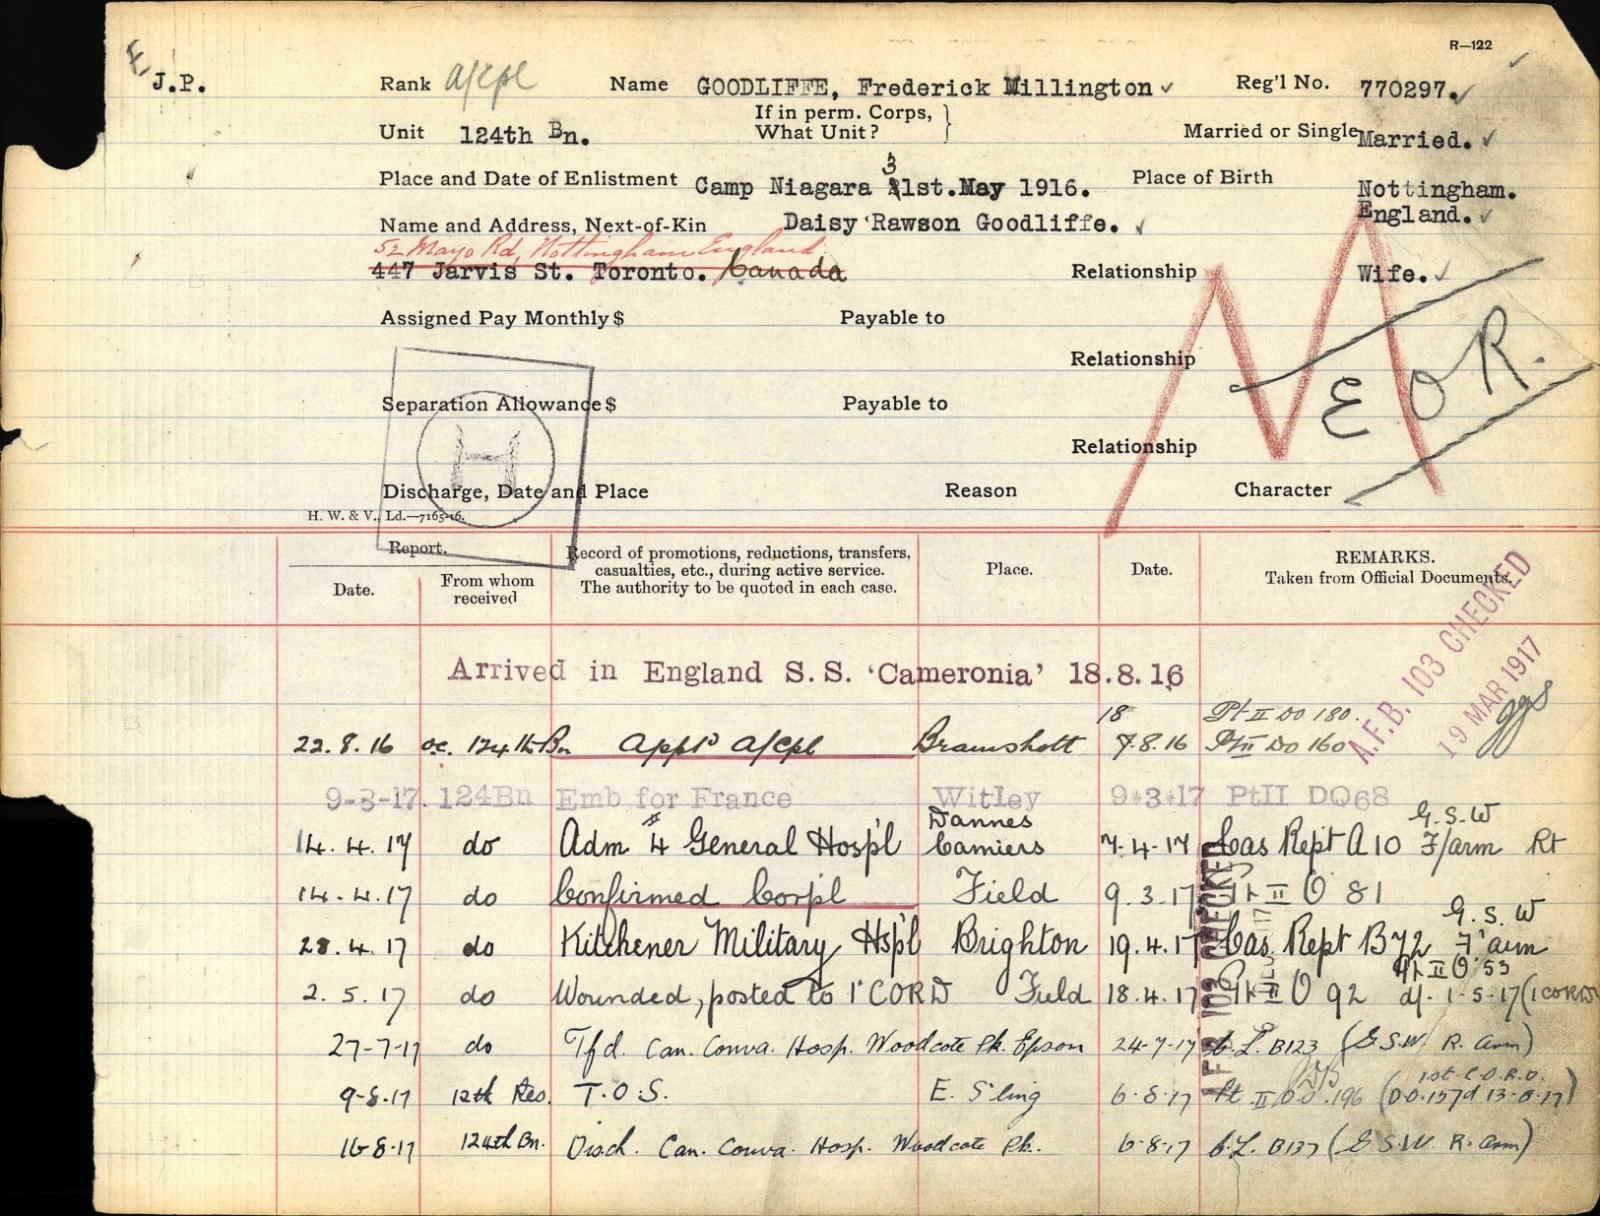 R—122
E
J.P. Rank a/cpl Name GOODLIFFE, Frederick Millington Reg'l No. 770297.
Unit 124th Bn. If in perm. Corps, What Unit? Married or Single Married.
Place and Date of Enlistment Camp Niagara 31st. May 1916. Place of Birth Nottingham. England.
Name and Address, Next-of-Kin Daisy Rawson Goodliffe.
52 Mayo Rd, Nottingham England
447 Jarvis St. Toronto. Canada Relationship Wife.
Assigned Pay Monthly $ Payable to
Relationship
M
E O R.
Separation Allowance $ Payable to
H
Relationship
Discharge, Date and Place Reason Character
H. W. & V., Ld.—7165-16.
Report.
Date.
From whom received
Record of promotions, reductions, transfers, casualties, etc., during active service. The authority to be quoted in each case.
Place.
Date.
REMARKS.
Taken from Official Documents.
A.F.B. 103 CHECKED
19 MAR 1917
Arrived in England S.S. 'Cameronia' 18.8.16
18 Pt II DO 180.
22.8.16 oc. 124th Bn App'd a/cpl Bramshott 7.8.16 Pt II DO 160
9-3-17. 124Bn Emb for France Witley 9-3-17 PtII DO68
14.4.17 do Adm 4 General Hosp'l Dannes Camiers 7-4-17 Cas Rept A10 G.S.W F/arm Rt
14.4.17 do Confirmed Corp'l Field 9.3.17 Pt II O 81
28.4.17 do Kitchener Military Hsp'l Brighton 19.4.17 Cas Rept B72 G.S.W F'arm
2.5.17 do Wounded, posted to 1 CORD Field 18.4.17 Pt II O 92 Pt II O 53 d/- 1-5-17 (1 CORD)
A.F.B. 103 CHECKED
27-7-17 do Tfd. Can. Conva. Hosp. Woodcote Pk. Epsom 24-7-17 C.L. B123 (G.S.W. R. Arm)
9-8-17 12th Res. T.O.S. E. S'ling 6-8-17 Pt II D.O. 196 (1st C.O.R.D. D.O.157d 13-8-17)
16-8-17 124th Bn. Disch. Can. Conva. Hosp. Woodcote Pk. 6-8-17 C.L. B137 (G.S.W. R. Arm)